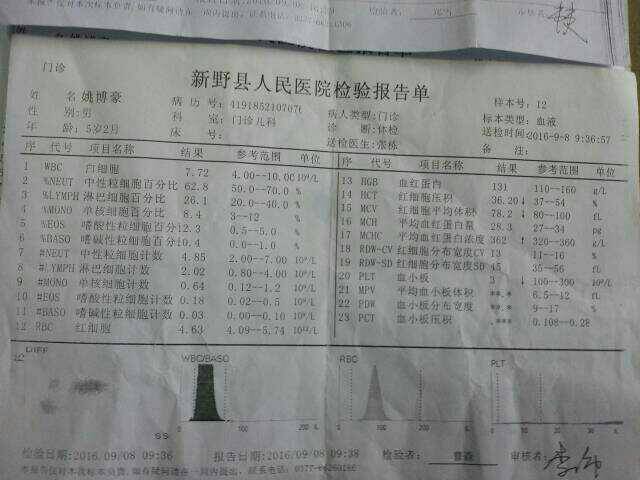 检验者:
门诊
新野县人民医院检验报告单
姓 名 姚博豪 病 历 号: 样本号: 12
性 别:男 科 室: 门诊儿科 病人类型:门诊 标本类型:血液
年 龄:5岁2月 床 号: 诊 断:体检 送检时间:2016-9-8 9:36:57
送检医生:张栋 备 注:
序 代号 项目名称 结果 参考范围 单位 序 代号 项目名称 结果 参考范围 单位
1 WBC 白细胞 7.72 4.00--10.00 10⁹/L 13 HGB 血红蛋白 131 110--160 g/L
2 %NEUT 中性粒细胞百分比 62.8 50.0--70.0 % 14 HCT 红细胞压积 36.20↓ 37--54 %
3 %LYMPH 淋巴细胞百分比 26.1 20.0--40.0 % 15 MCV 红细胞平均体积 78.2↓ 80--100 fL
4 %MONO 单核细胞百分比 8.4 3--12 % 16 MCH 平均血红蛋白量 28.3 27--34 pg
5 %EOS 嗜酸性粒细胞百分比 2.3 0.5--5.0 % 17 MCHC 平均血红蛋白浓度 362↑ 320--360 g/L
6 %BASO 嗜碱性粒细胞百分比 0.4 0.0--1.0 % 18 RDW-CV 红细胞分布宽度CV 13 11--16 %
7 #NEUT 中性粒细胞计数 4.85 2.00--7.00 10⁹/L 19 RDW-SD 红细胞分布宽度SD 45 35--56 fL
8 #LYMPH 淋巴细胞计数 2.02 0.80--4.00 10⁹/L 20 PLT 血小板 3↓ 100--300 10⁹/L
9 #MONO 单核细胞计数 0.64 0.12--1.2 10⁹/L 21 MPV 平均血小板体积 **.* 6.5--12 fL
10 #EOS 嗜酸性粒细胞计数 0.18 0.02--0.5 10⁹/L 22 PDW 血小板分布宽度 **.* 9--17 %
11 #BASO 嗜碱性粒细胞计数 0.03 0.00--0.10 10⁹/L 23 PCT 血小板压积 .*** 0.108--0.28
12 RBC 红细胞 4.63 4.09--5.74 10¹²/L
DIFF WBC/BASO RBC PLT
SS 100 200 fL 100 200 10 20 30
检验日期:2016/09/08 09:36 报告日期:2016/09/08 09:38 检验者: 曹森 审核者:
本报告仅对本次标本负责,如有疑问请在一周内提出,联系电话: